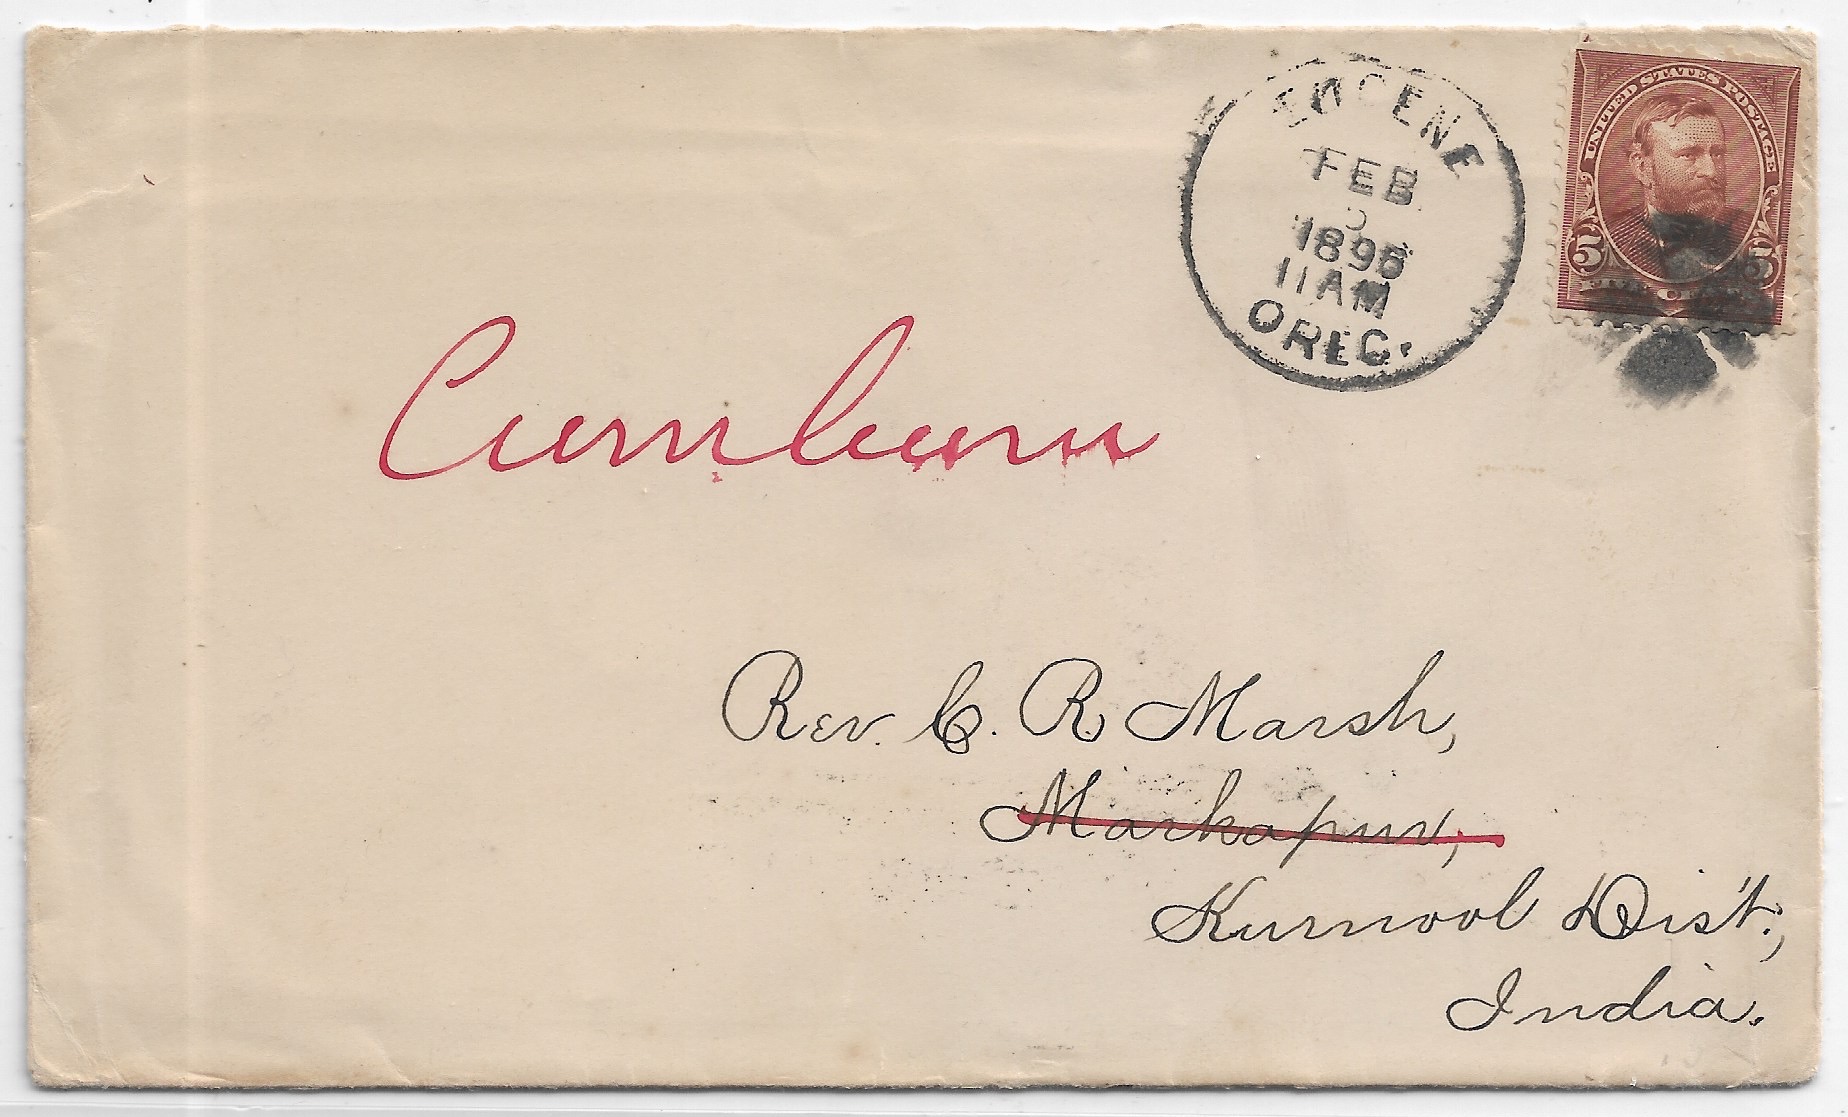 EUGENE
FEB
5
1895
11 AM
OREG.
UNITED STATES POSTAGE
5 5
FIVE CENTS
Cumbum
Rev. C. R. Marsh,
Markapur,
Kurnool Dist.,
India.